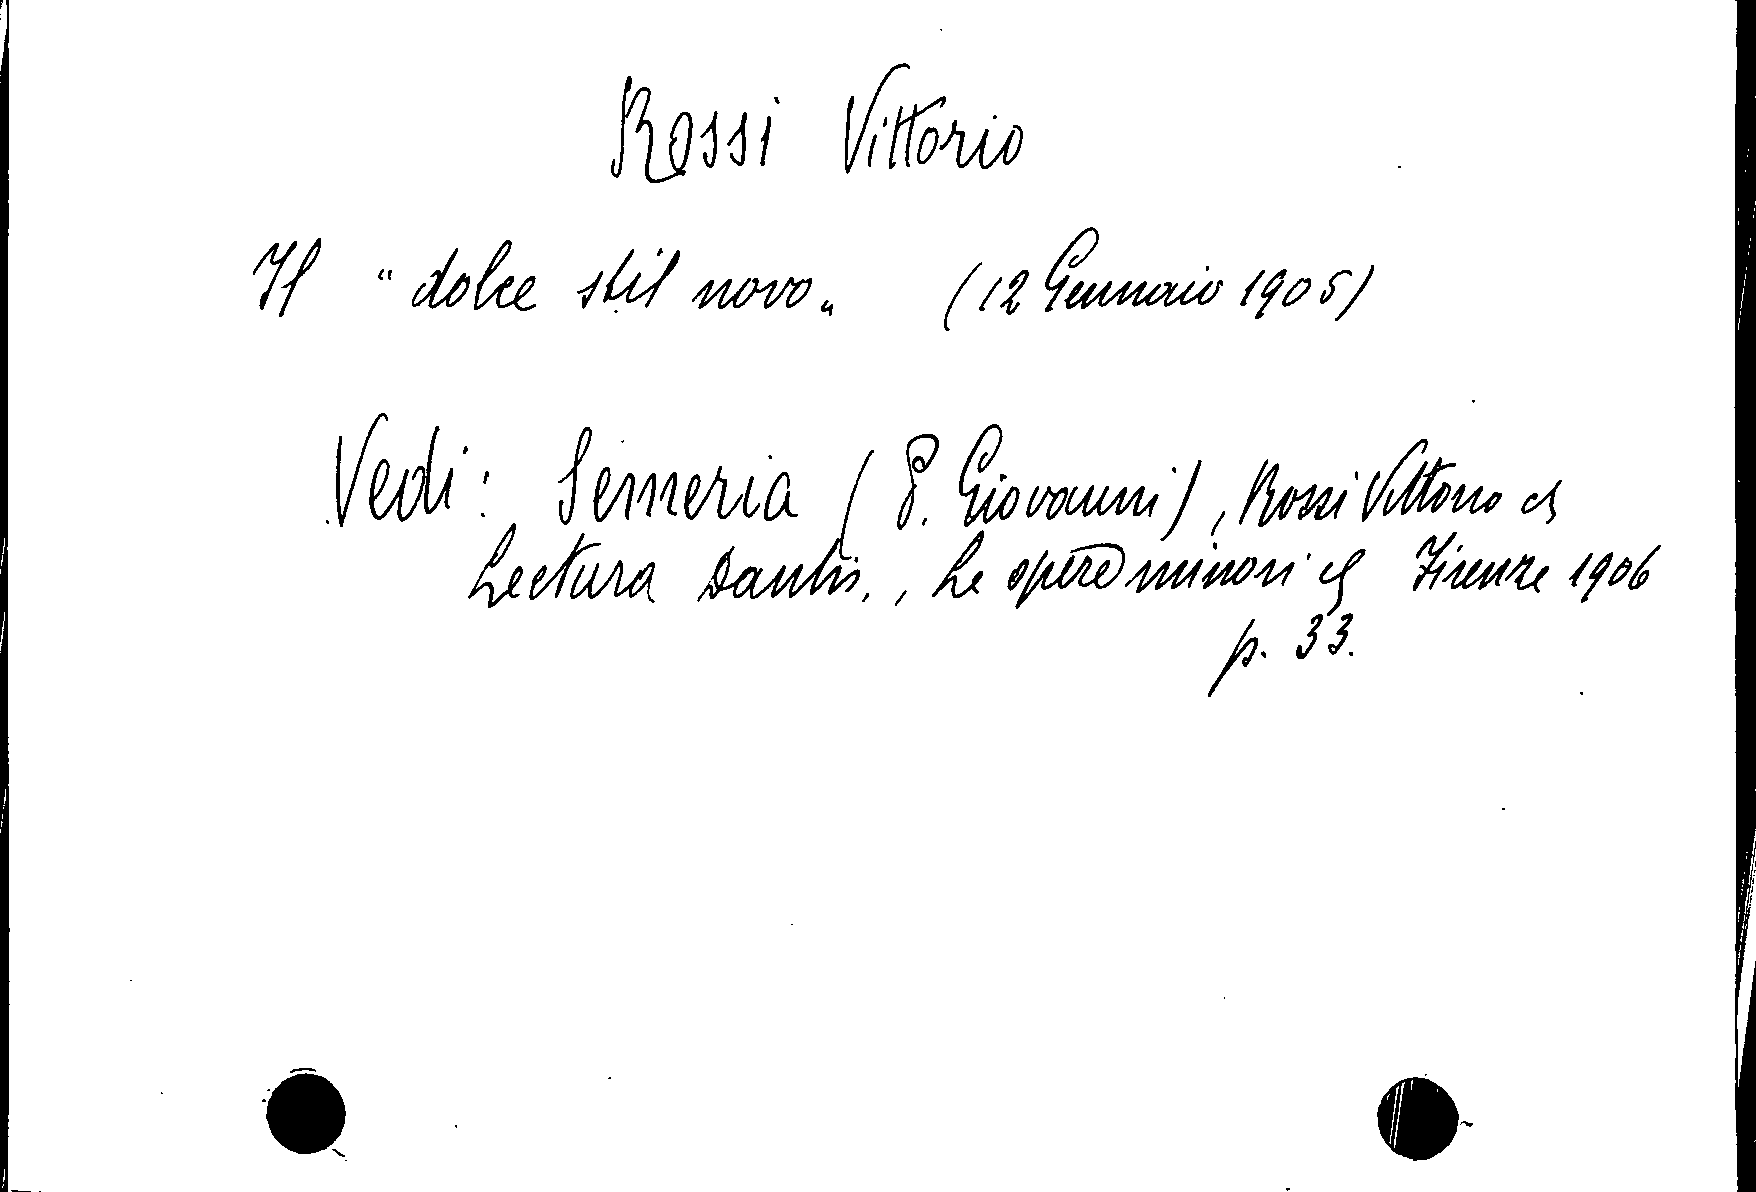 Rossi Vittorio
Il "dolce stil novo„ (12 Gennaio 1905)
Vedi: Semeria (P. Giovanni), Rossi Vittorio
Lectura Dantis., Le opere minori Firenze 1906
p. 33.